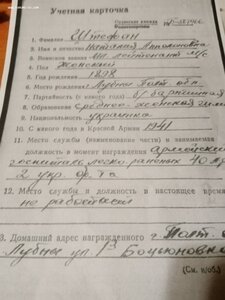 Учетная карточка
Орденская книжка
1. Фамилия Штефан
2. Имя и отчество Наталия Апполоновна
3. Воинское звание мл лейтенант м/с
4. Пол женский
5. Год рождения 1898
6. Место рождения Лубны Полт. обл.
7. Партийность (с какого года) б/партийная
8. Образование среднее - женская гимн
9. Национальность украинка
10. С какого года в Красной Армии 1941
11. Место службы (наименование части) и занимаемая
должность в момент награждения армейский
госпиталь легко-раненых 40 Ар
2 укр. фр-та
12. Место службы и должность в настоящее время
не работает
13. Домашний адрес награжденного г. Полт. о
Лубны ул.
(См. н/об.)